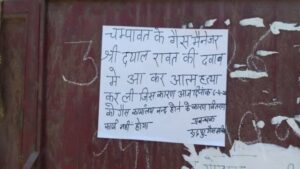 चम्पावत के गैस मैनेजर
श्री दयाल रावत की दबाव
मे आ कर आत्महत्या
कर ली जिस कारण आज दिनांक
को गैस कार्यालय बन्द होने के कारण वितरण
कार्य नहीं होगा
प्रबन्धक
3